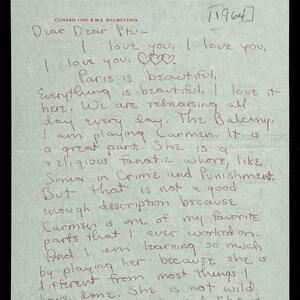 [1964]
CUNARD LINE R.M.S. MAURETANIA
Dear Dear Ptu -
I love you, I love you,
I love you.
Paris is beautiful.
Everything is beautiful. I love it
here. We are rehearsing all
day every day. The Balcony.
I am playing Carmen. It is
a great part. She is a
religious fanatic whore, like
Sonia in Crime and Punishment.
But that is not a good
enough description because
Carmen is one of my favorite
parts that I ever worked on.
And I am learning so much
by playing her because she is
different from most things I
have done. She is not wild